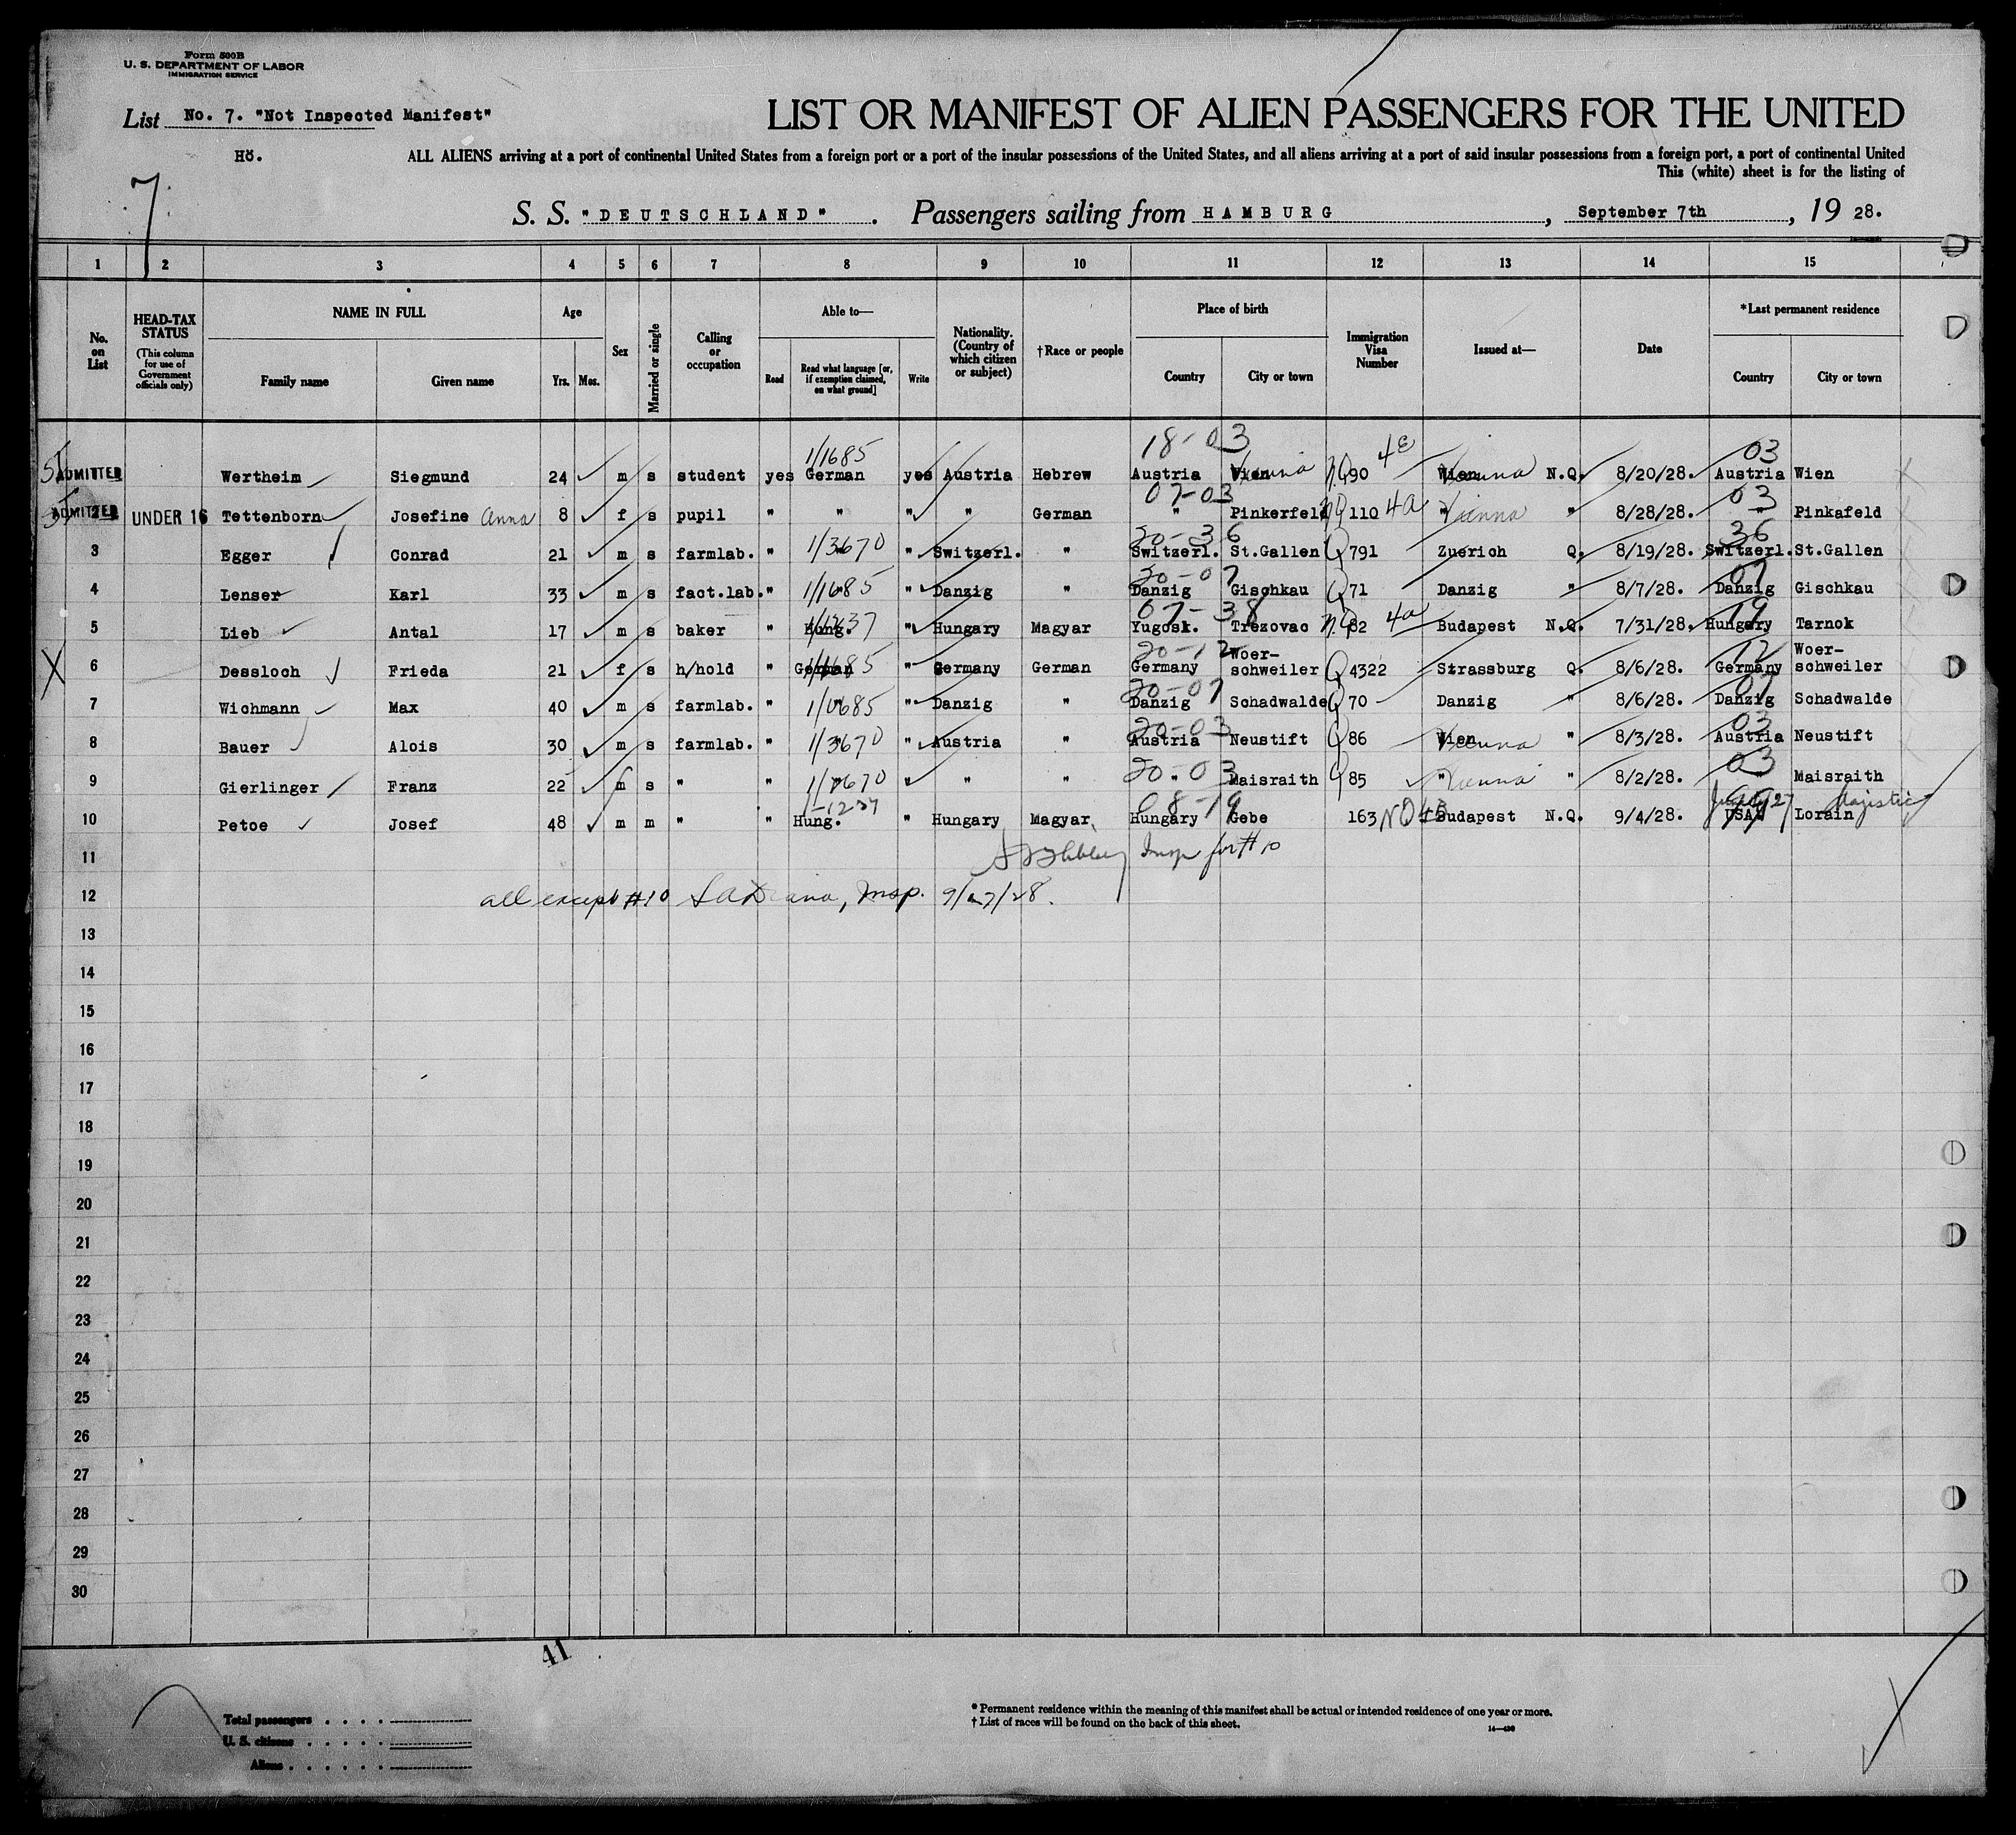 Form 500B
U. S. DEPARTMENT OF LABOR
IMMIGRATION SERVICE
List No. 7. "Not Inspected Manifest"
LIST OR MANIFEST OF ALIEN PASSENGERS FOR THE UNITED
Hö.
ALL ALIENS arriving at a port of continental United States from a foreign port or a port of the insular possessions of the United States, and all aliens arriving at a port of said insular possessions from a foreign port, a port of continental United
This (white) sheet is for the listing of
7
S. S. "DEUTSCHLAND". Passengers sailing from HAMBURG, September 7th, 19 28.
1 2 3 4 5 6 7 8 9 10 11 12 13 14 15
No. on List
HEAD-TAX STATUS (This column for use of Government officials only)
NAME IN FULL Family name Given name
Age Yrs. Mos.
Sex
Married or single
Calling or occupation
Able to— Read Read what language [or, if exemption claimed, on what ground] Write
Nationality. (Country of which citizen or subject)
†Race or people
Place of birth Country City or town
Immigration Visa Number
Issued at—
Date
*Last permanent residence Country City or town
1/1685 18-03 4E 03
ADMITTED Wertheim Siegmund 24 m s student yes German yes Austria Hebrew Austria Wien Vienna NQ 90 Wien Vienna N.Q. 8/20/28. Austria Wien
07-03 03
ADMITTED 2 UNDER 16 Tettenborn Josefine Anna 8 f s pupil " " " " German " Pinkerfeld NQ 110 4a " Vienna " 8/28/28. " Pinkafeld
20-36 36
3 Egger Conrad 21 m s farmlab. " 1/3670 " Switzerl. " Switzerl. St.Gallen Q 791 Zuerich Q. 8/19/28. Switzerl. St.Gallen
20-07 07
4 Lenser Karl 33 m s fact.lab. " 1/1685 " Danzig " Danzig Gischkau Q 71 Danzig " 8/7/28. Danzig Gischkau
07-38 19
5 Lieb Antal 17 m s baker " Hung. " Hungary Magyar Yugosl. Trezovac N.Q. 82 4a Budapest N.Q. 7/31/28. Hungary Tarnok
20-12 12
6 Dessloch Frieda 21 f s h/hold " German 1/1685 " Germany German Germany Woer-schweiler Q 4322 Strassburg Q. 8/6/28. Germany Woer-schweiler
20-07 07
7 Wichmann Max 40 m s farmlab. " " Danzig " Danzig Schadwalde Q 70 Danzig " 8/6/28. Danzig Schadwalde
20-03 03
8 Bauer Alois 30 m s farmlab. " 1/3670 " Austria " Austria Neustift Q 86 Wien Vienna " 8/3/28. Austria Neustift
20-03 03
9 Gierlinger Franz 22 m s " " " " " " Maisraith Q 85 " Vienna " 8/2/28. Maisraith
08-19
10 Petoe Josef 48 m m " " Hung. " Hungary Magyar Hungary Gebe 163 NQ Budapest N.Q. 9/4/28. USA Lorain Majestic
11 Insp for #10
12 all except #10 Insp. 9/17/28.
13
14
15
16
17
18
19
20
21
22
23
24
25
26
27
28
29
30
41
Total passengers
U. S. citizens
Aliens
* Permanent residence within the meaning of this manifest shall be actual or intended residence of one year or more.
† List of races will be found on the back of this sheet.
14—430